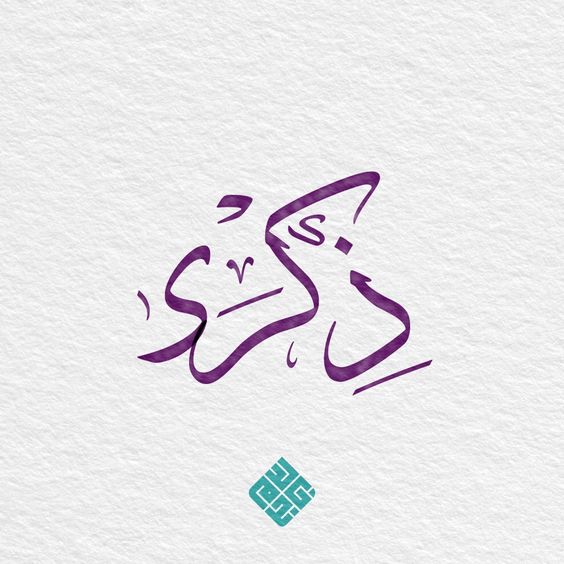 ذِكْرَى